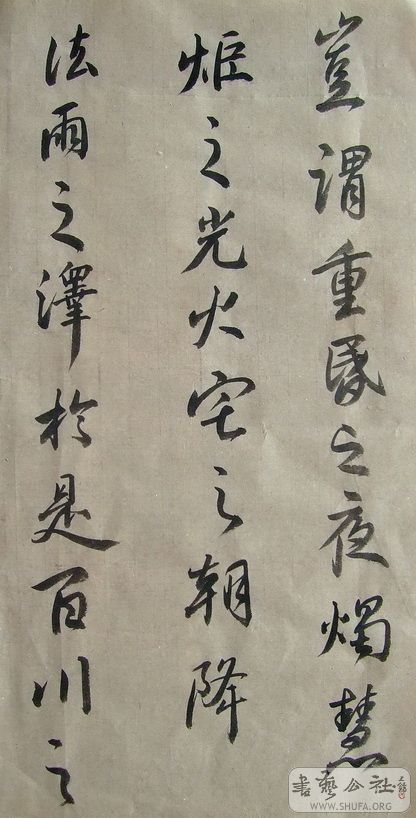 豈謂重昏之夜燭慧
炬之光火宅之朝降
法雨之澤於是百川之
書藝公社
WWW.SHUFA.ORG